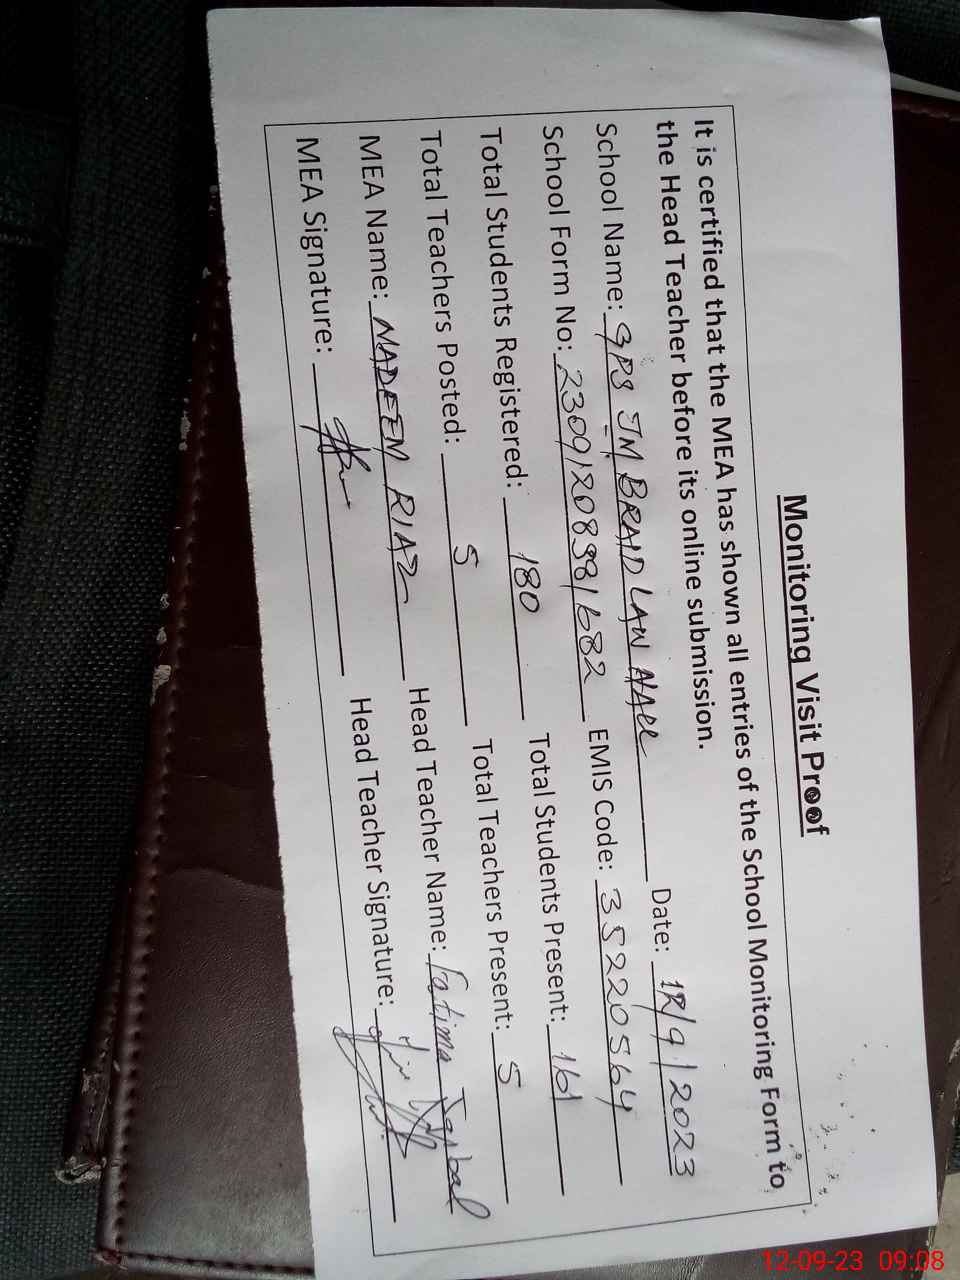 Monitoring Visit Proof
It is certified that the MEA has shown all entries of the School Monitoring Form to
the Head Teacher before its online submission.
School Name: GPS JM BRAID LAW HALL Date: 12/9/2023
School Form No: 23091208981682 EMIS Code: 35220564
Total Students Registered: 180 Total Students Present: 161
Total Teachers Posted: 5 Total Teachers Present: 5
MEA Name: NADEEM RIAZ Head Teacher Name: Fatima Iqbal
MEA Signature: Head Teacher Signature:
12-09-23 09:08